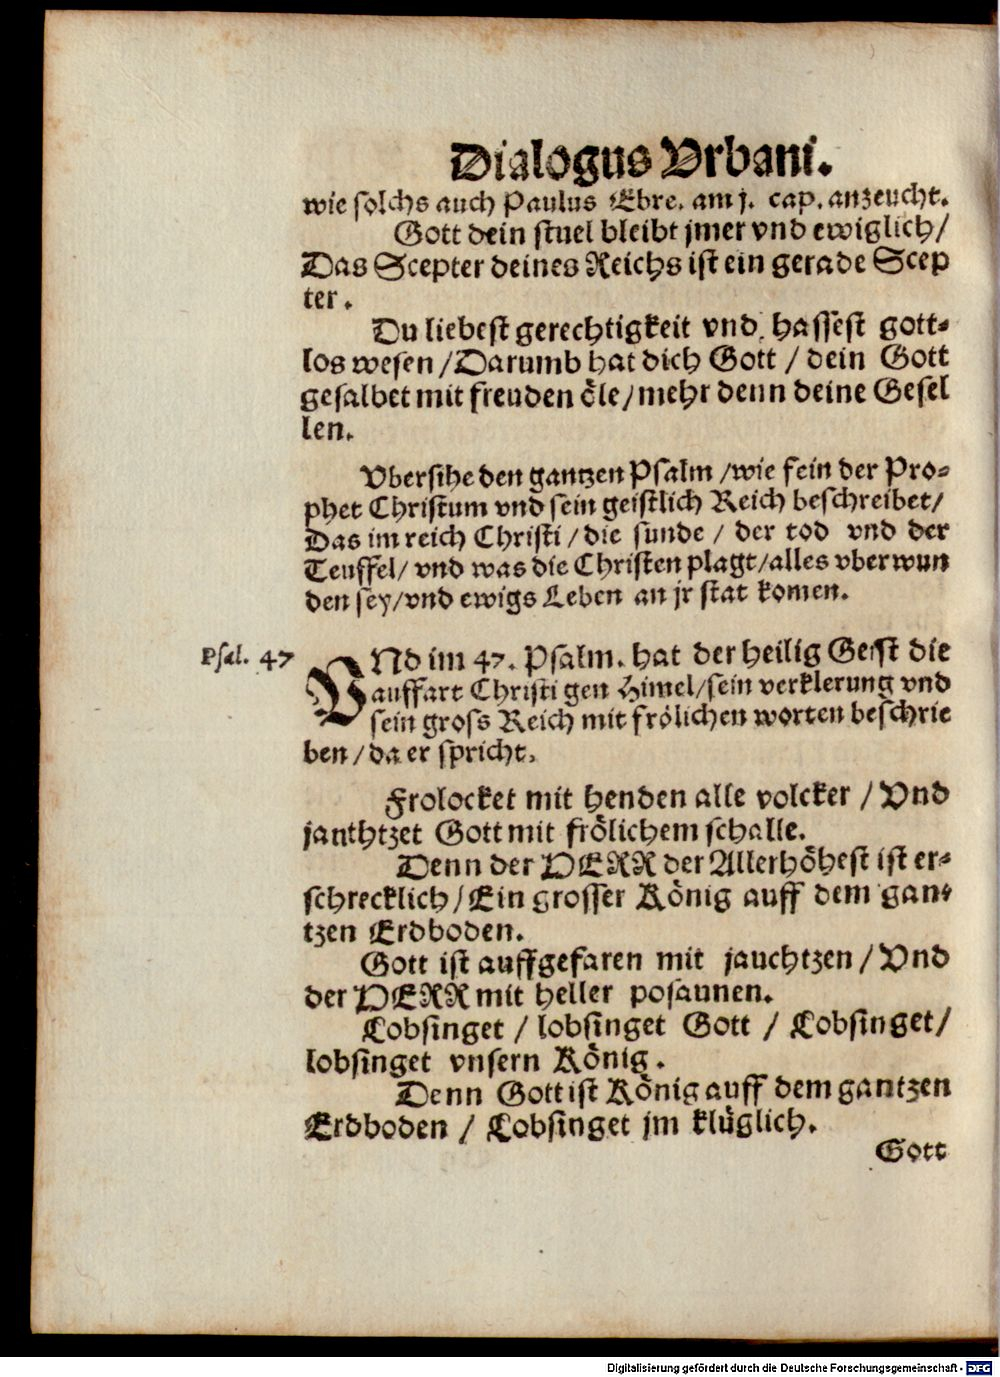 Dialogus Vrbani.
wie solchs auch Paulus Ebre. am j. cap. anzeucht.
Gott dein stuel bleibt jmer vnd ewiglich/
Das Scepter deines Reichs ist ein gerade Scep
ter.
Du liebest gerechtigkeit vnd hassest gott-
los wesen/Darumb hat dich Gott / dein Gott
gesalbet mit freuden öle/mehr denn deine Gesel
len.
Vbersihe den gantzen Psalm /wie fein der Pro-
phet Christum vnd sein geistlich Reich beschreibet/
Das im reich Christi / die sunde / der tod vnd der
Teuffel/ vnd was die Christen plagt/alles vberwun
den sey/vnd ewigs Leben an jr stat komen.
Psal. 47
VNd im 47. Psalm. hat der heilig Geist die
auffart Christi gen Himel/sein verklerung vnd
sein gross Reich mit frölichen worten beschrie
ben/da er spricht.
Frolocket mit henden alle volcker / Vnd
janthtzet Gott mit frölichem schalle.
Denn der HERR der Allerhöhest ist er-
schrecklich/Ein grosser König auff dem gan-
tzen Erdboden.
Gott ist auffgefaren mit jauchtzen / Vnd
der HERR mit heller posaunen.
Lobsinget / lobsinget Gott / Lobsinget/
lobsinget vnsern König.
Denn Gott ist König auff dem gantzen
Erdboden / Lobsinget jm klüglich.
Gott
Digitalisierung gefördert durch die Deutsche Forschungsgemeinschaft - DFG